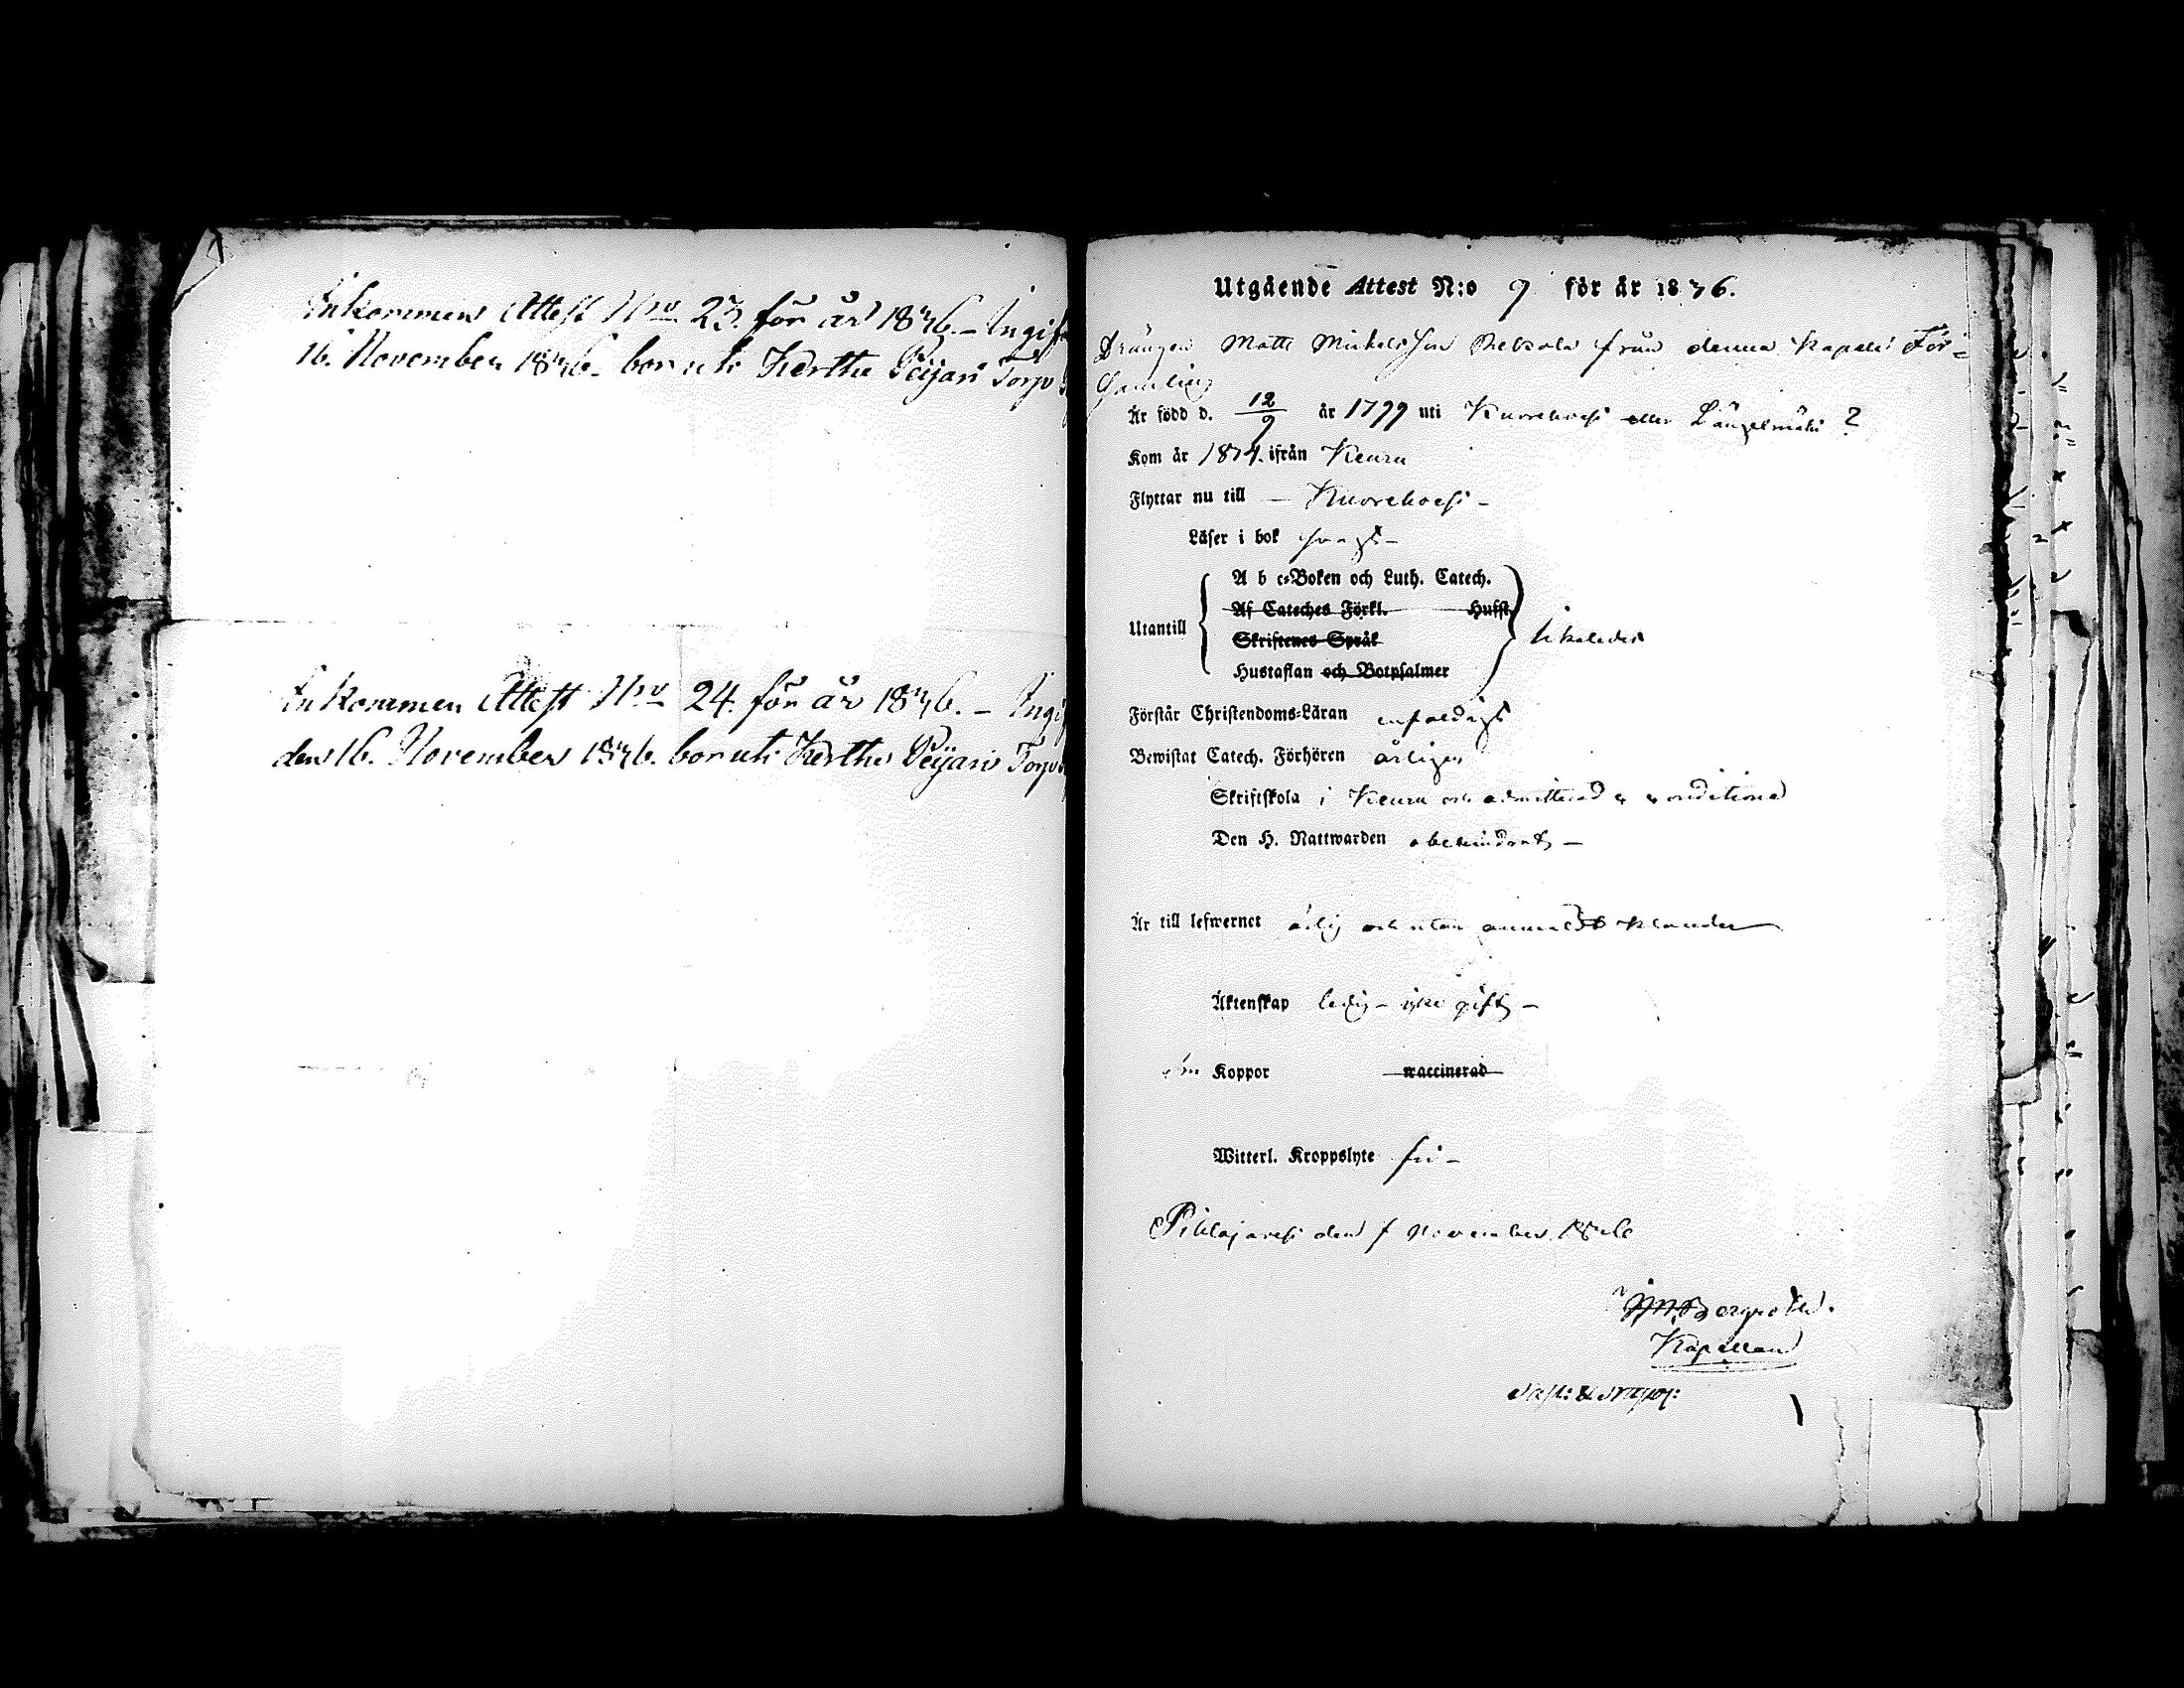 Inkommen Attest N:ro 23. för år 1846. – Ingif
16. November 1846. bor uti Kerthe Peijari Torp
Inkommen Attest N:ro 24. för år 1846. – Ingif
den 16. November 1846. bor uti Kerthe Peijari Torp
Utgående Attest N:o 9 för år 1846.
Drängen Matts Michelsson från denna Kapells För=
samling
Är född d. 12/9 år 1799 uti Kuorehvesi eller Längelmäki ?
Kom år 1814. ifrån Keuru
Flyttar nu till – Kuorehvesi –
Läser i bok svagt –
Utantill
A b c=Boken och Luth. Catech.
Af Cateches Förkl. Hufst.
Skriftenes Språk
Hustaflan och Botpsalmer
likaledes
Förstår Christendoms=Läran enfaldigt
Bewistat Catech. Förhören årligen
Skriftskola i Keuru och admitterad
Den H. Nattwarden obehindrat –
Är till lefwernet ärlig och utan klander
Äktenskap ledig – icke gift –
Koppor waccinerad
Witterl. Kroppslyte fri –
Pihlajavesi den November 1846
Kapellan